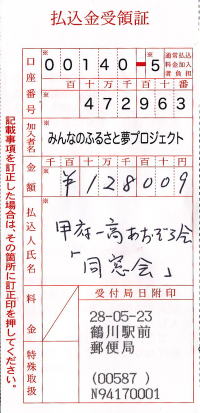 払込金受領証
口座番号
00140-5
通常払込料金加入者負担
千百十万千百十番
472963
加入者名
みんなのふるさと夢プロジェクト
金額
千百十万千百十円
¥128009
払込人氏名
甲府一高あおぞら会
「同窓会」
料金
特殊取扱
受付局日附印
28-05-23
鶴川駅前
郵便局
(00587)
N94170001
記載事項を訂正した場合は、その箇所に訂正印を押してください。